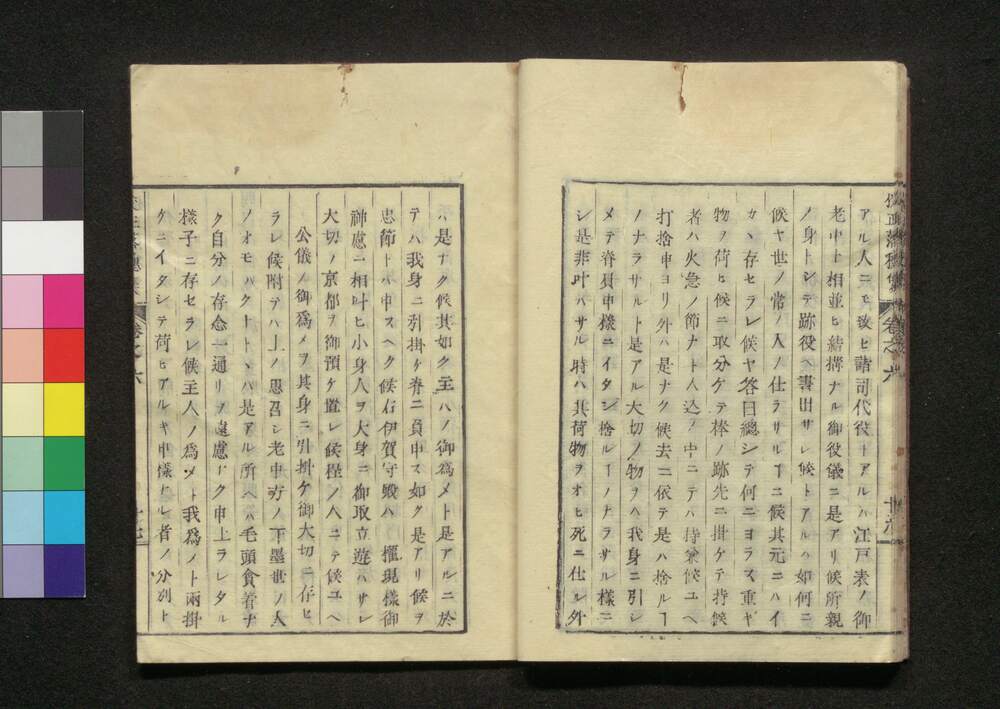 アル人ニモ致ヒ諸司代役トアルハ江戸表ノ御
老中ト相並ヒ結搆ナル御役儀ニ是アリ候所親
ノ身トシテ跡役ヘ書出サレ候トアルハ如何ニ
候ヤ世ノ常ノ人ノ仕ラサルヿニ候其元ニハイ
カヽ存セラレ候ヤ答曰總シテ何ニヨラス重キ
物ヲ荷ヒ候ニ取分ケテ棒ノ跡先ニ掛ケテ持候
者ハ火急ノ節ナト人込ノ中ニテハ持兼候ユヘ
打捨申ヨリ外ハ是ナク候去ニ依テ是ハ捨ルヿ
ノナラサルト是アル大切ノ物ヲハ我身ニ引シ
メテ脊員申様ニイタシ捨ルヿノナラサル様ニ
シ是非叶ハサル時ハ其荷物ヲオヒ死ニ仕ル外
ハ是ナク候其如ク主ハノ御為メト是アルニ於
テハ我身ニ引掛ケ脊ニ負申ス如ク是アリ候ヲ
忠節トハ申スヘク候右伊賀守殿ハ 權現様御
神慮ニ相叶ヒ小身人ヲ大身ニ御取立遊ハサレ
大切ノ京都ヲ御預ケ置レ候程ノ人ニテ候ユヘ
公儀ノ御為メヲ其身ニ引掛ケ御大切ニ存ヒ
ラレ候附テハ上ノ思召シ老中方ノ下墨世ノ人
ノオモハクトトヽハ是アル所ヘハ毛頭貪着ナ
ク自分ノ存念一通リヲ遠慮ナク申上ラレタル
様子ニ存セラレ候主人ノ為メト我為ノト兩掛
ケニイタシテ荷ヒアルキ申様ナル者ノ分別ト
卷之六